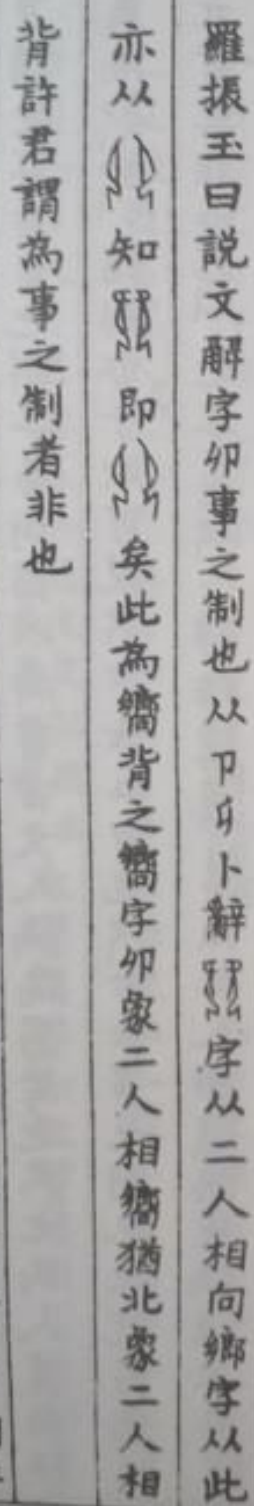 羅振玉曰說文解字卯事之制也从卩𠨍卜辭字从二人相向鄉字从此
亦从知即矣此為嚮背之嚮字卯象二人相嚮猶北象二人相
背許君謂為事之制者非也